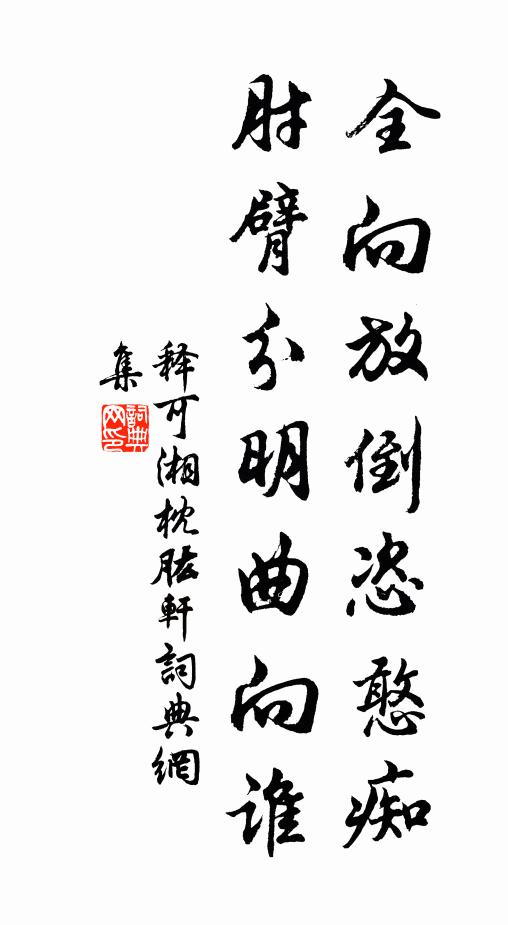 全向放倒恣憨痴
肘臂分明曲向誰
释可湘枕肱軒詞典網
集
詞典
网印